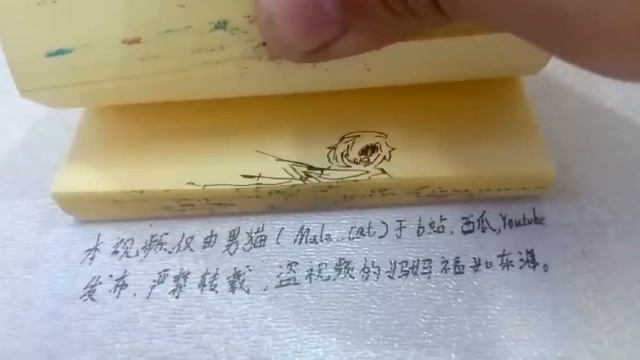 本视频仅由男猫(Male cat)于b站,西瓜,Youtube
发布,严禁转载,盗视频的妈妈福如东海。